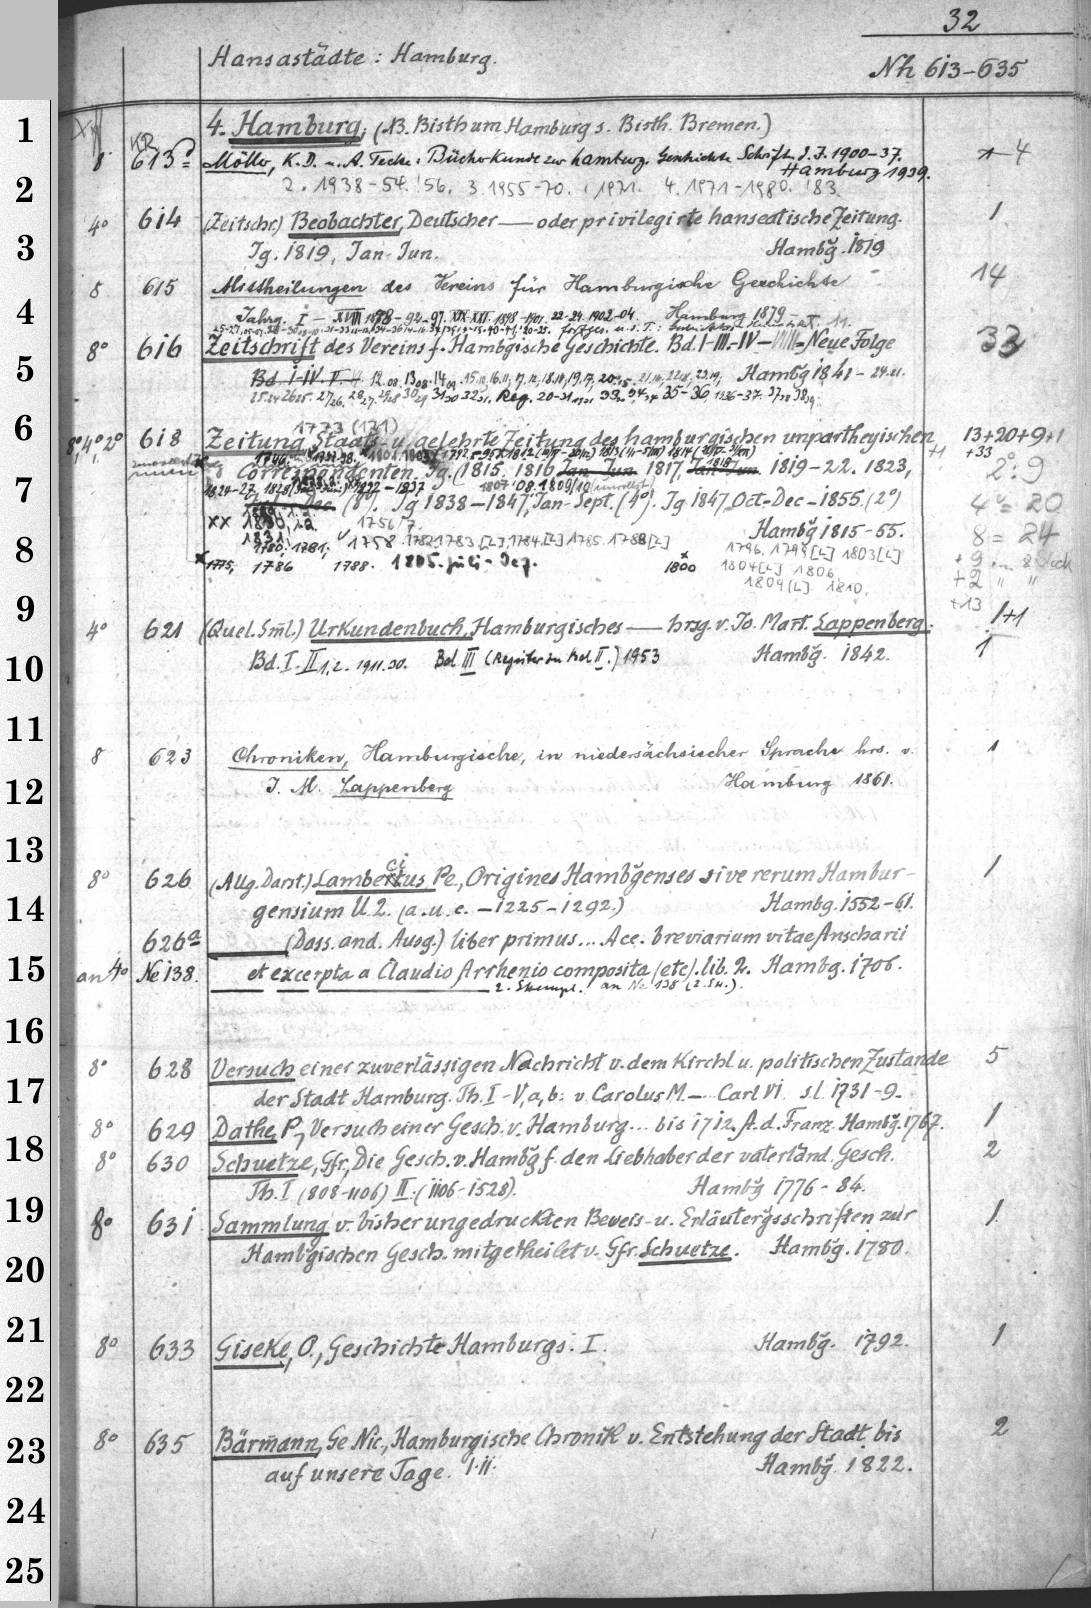 32
Hansastädte : Hamburg.
Nh 613-635
4. Hamburg, (NB. Bisthum Hamburg s. Bisth. Bremen.)
8° 613a Möller, K. D. u. A. Tecke: Bücherkunde zur hamburg. Geschichte Schrift. d. J. 1900-37. 4
Hamburg 1939.
2. 1938-54. '56. 3. 1955-70. 1971. 4. 1971-1980. '83
4° 614 (Zeitschr.) Beobachter, Deutscher — oder privilegirte hanseatische Zeitung. 1
Jg. 1819, Jan-Jun. Hambg. 1819
8 615 Mittheilungen des Vereins für Hamburgische Geschichte 14
Jahrg. I - XVIII 1878-94-97. XIX-XXI. 1898-1901. 22-24. 1902-04. Hamburg 1879-
8° 616 Zeitschrift des Vereins f. Hambgische Geschichte. Bd. I-III-IV- Neue Folge 33
Bd. I-IV. Hambg 1841-
1773 (131)
8°,4°,2° 618 Zeitung Staats- u. gelehrte Zeitung des hamburgischen unpartheyischen 13+20+9+1
+33
Correspondenten. Jg. (1815. 1816 Jan-Jun. 1817, 1819-22. 1823, 2°: 9
1824-27, 1828
(8°). Jg 1838-1847, Jan-Sept. (4°). Jg 1847 Oct-Dec-1855. (2°) 4° = 20
xx 1830, 1.2. 1756/7. Hambg 1815-55.
1831 8 = 24
1780. 1781. 1758. 1782 1783 [L], 1784 [L] 1785. 1788 [L] 1796. 1799 [L] 1803 [L]
x 1775, 1786 1788. 1805. Juli-Dez. x 1800 1804 [L] 1806
+2 " "
1809 [L] 1810.
+13
4° 621 (Quel. Sml.) Urkundenbuch, Hamburgisches — hrsg. v. Jo. Mart. Lappenberg. 1+1
Bd. I. II 1,2. 1911.30. Bd III (Register zu Bd II.) 1953 Hambg. 1842. 1
8 623 Chroniken, Hamburgische, in niedersächsischer Sprache hrs. v. 1
J. M. Lappenberg Hamburg 1861.
ci
8° 626 (Allg. Darst.) Lambertus Pe., Origines Hambgenses sive rerum Hambur- 1
gensium ll. 2. (a. u. c. -1225-1292.) Hambg. 1552-61.
626a — (Dass. and. Ausg.) liber primus... Acc. breviarium vitae Anscharii
an 4° Ne 138. et excerpta a Claudio Arrhenio composita (etc). lib. 2. Hambg. 1706.
2. Exempl. an Ne 138 (2. St.).
8° 628 Versuch einer zuverlässigen Nachricht v. dem Kirchl. u. politischen Zustande 5
der Stadt Hamburg. Th. I-V, a, b: v. Carolus M. — Carl VI. s.l. 1731-9.
8° 629 Dathe, P., Versuch einer Gesch. v. Hamburg... bis 1712. A. d. Franz. Hambg. 1767. 1
8° 630 Schuetze, Gfr., Die Gesch. v. Hambg f. den Liebhaber der vaterländ. Gesch. 2
Th. I (808-1106) II. (1106-1528). Hambg 1776-84.
8° 631 Sammlung v. bisher ungedruckten Beweis- u. Erläutergsschriften zur 1
Hambgischen Gesch. mitgetheilet v. Gfr. Schuetze. Hambg. 1780.
8° 633 Giseke, O., Geschichte Hamburgs. I. Hambg. 1792. 1
8° 635 Bärmann, Ge Nic., Hamburgische Chronik v. Entstehung der Stadt bis 2
auf unsere Tage. I.II. Hambg. 1822.
1
2
3
4
5
6
7
8
9
10
11
12
13
14
15
16
17
18
19
20
21
22
23
24
25